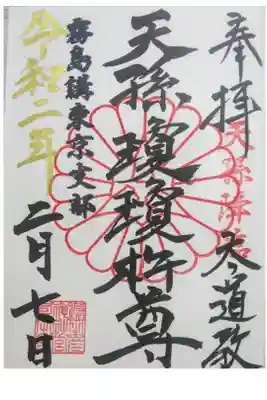 奉拝
天孫降臨
天瓊瓊杵尊
霧島講東京支部
令和二年
二月七日